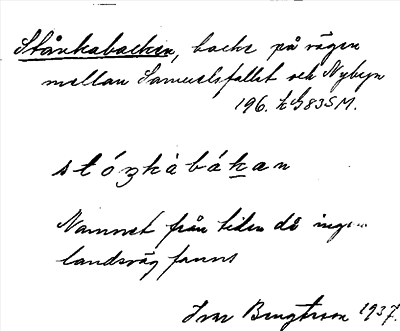 Stånkabacken, backe på vägen
mellan Samuelsfallet och Nybyn
196.
stóŋkàbákan
Namnet från tiden då ingen
landsväg fanns
Ivar Bengtsson 1937.